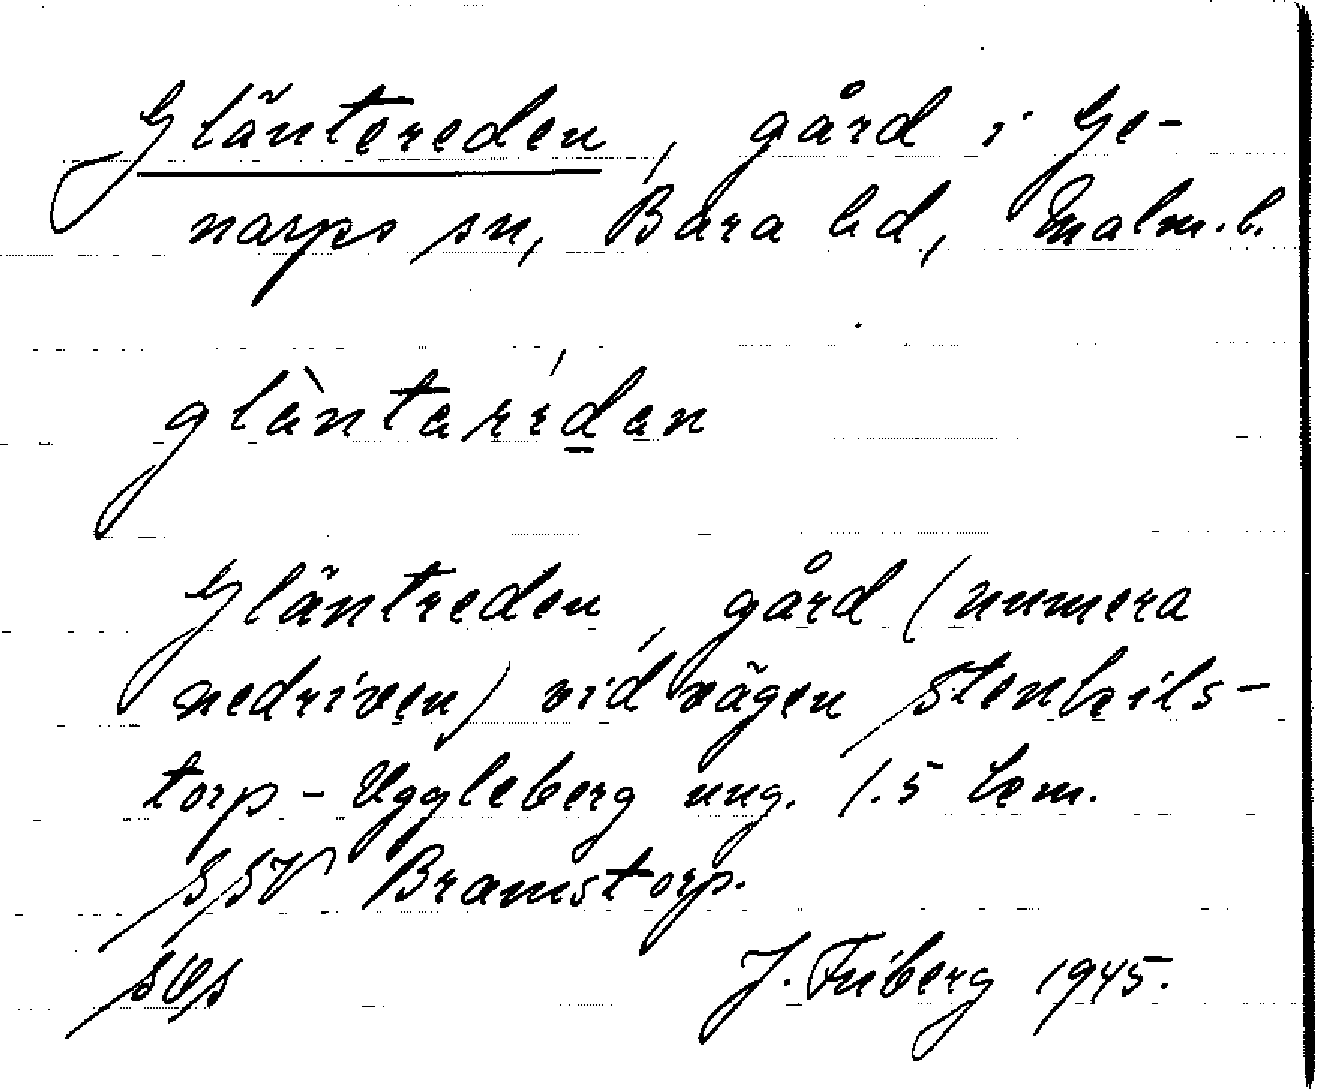 Gläntereden, gård i Ge-
narps sn, Bara hd, Malm. l.
glàntaridan
Gläntreden, gård (numera
nedriven) vid vägen Stenbils-
torp - Uggleberg ung. 1.5 km.
SSV Bramstorp.
J. Friberg 1945.